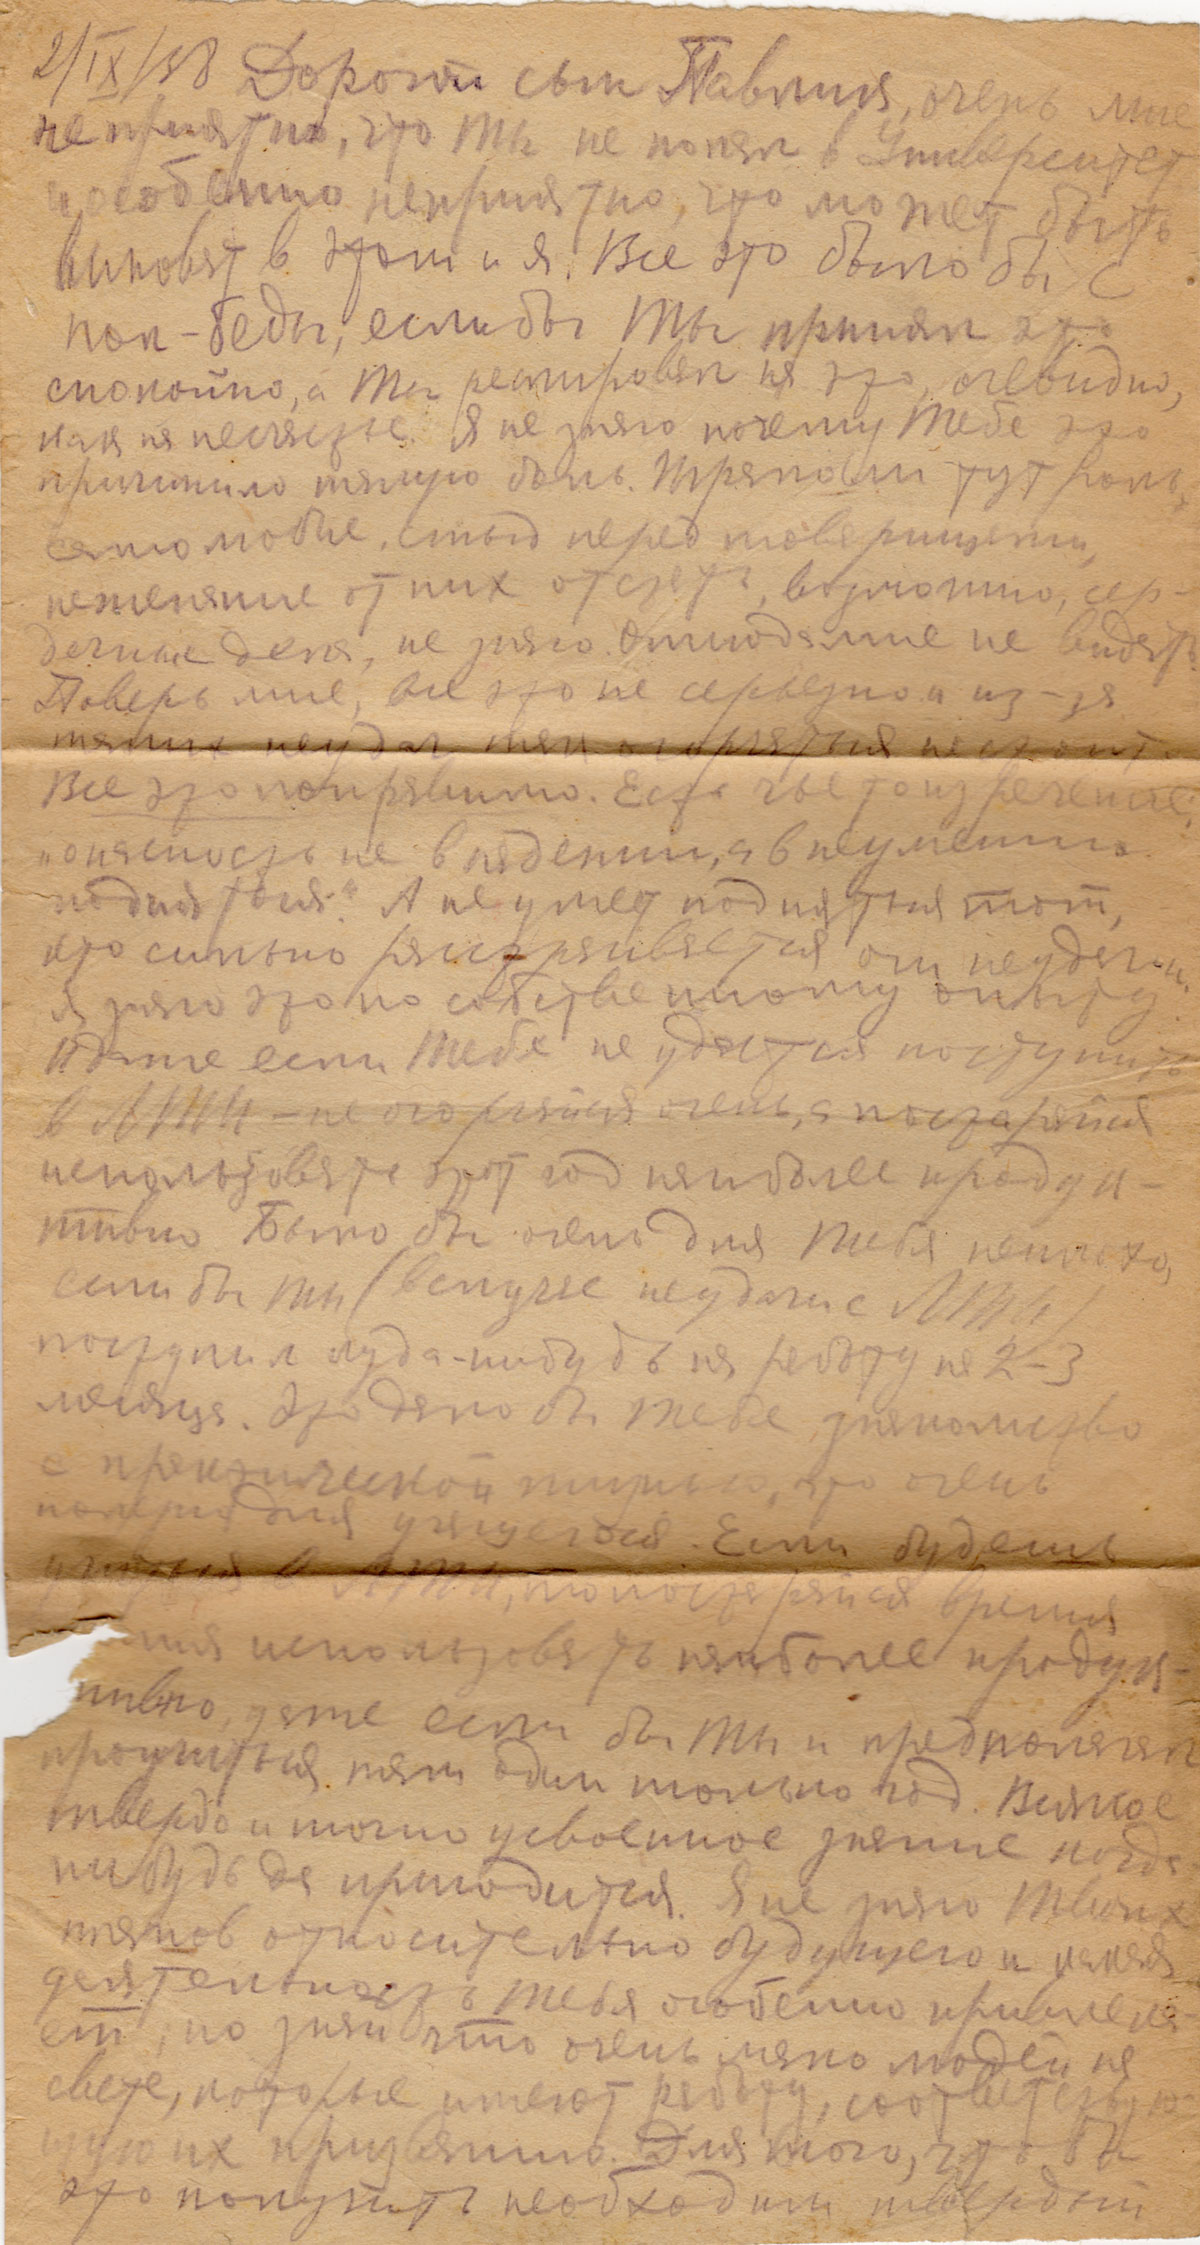 2/IX/38 Дорогой сын Павлик, очень мне
неприятно, что Ты не попал в Университет
и особенно неприятно, что может быть
виноват в этом и я. Все это было бы с
пол-беды, если бы Ты принял это
спокойно, а Ты реагировал на это, очевидно,
как на несчастье. Я не знаю почему Тебе это
причинило такую боль. Играло ли тут роль
самолюбие, стыд перед товарищами,
нежелание от них отстать, возможно, сер-
дечные дела, не знаю. Отсюда мне не видать.
Поверь мне, все это не серьезно и из-за
таких неудач так огорчаться не стоит.
Все это поправимо. Есть чье то изречение:
"опасность не в падении, а в неумении
подняться." А не умеет подняться тот,
кто сильно расстраивается от неудачи.
Я знаю это по собственному опыту.
И даже если Тебе не удастся поступить
в ЛТИ - не огорчайся очень, а постарайся
использовать этот год наиболее продук-
тивно. Было бы очень для Тебя неплохо,
если бы ты (в случае неудачи с ЛТИ)
поступил куда-нибудь на работу на 2-3
месяца. Это дало бы Тебе знакомство
с практической жизнью, это очень
полезно для учащегося. Если будешь
учиться в ЛТИ, то постарайся время
использовать наиболее продук-
тивно, даже если бы Ты и предполагал
проучиться там один только год. Всякое
твердо и точно усвоенное знание когда
нибудь да пригодится. Я не знаю Твоих
планов относительно будущего и какая
деятельность Тебя особенно привлека-
ет, но знай что очень мало людей на
свете, которые имеют работу, соответствую-
щую их призванию. Для того, что бы
это получить необходим твердый